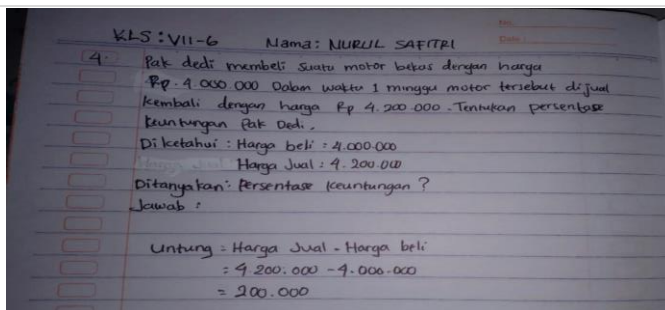 No.
Date :
KLS : VII-6 Nama : NURUL SAFITRI
4. Pak dedi membeli suatu motor bekas dengan harga
Rp. 4.000.000 Dalam waktu 1 minggu motor tersebut dijual
kembali dengan harga Rp 4.200.000. Tentukan persentase
keuntungan Pak Dedi.
Diketahui : Harga beli : 4.000.000
Harga Jual : 4.200.000
Ditanyakan : Persentase keuntungan ?
Jawab :
Untung = Harga Jual - Harga beli
= 4.200.000 - 4.000.000
= 200.000